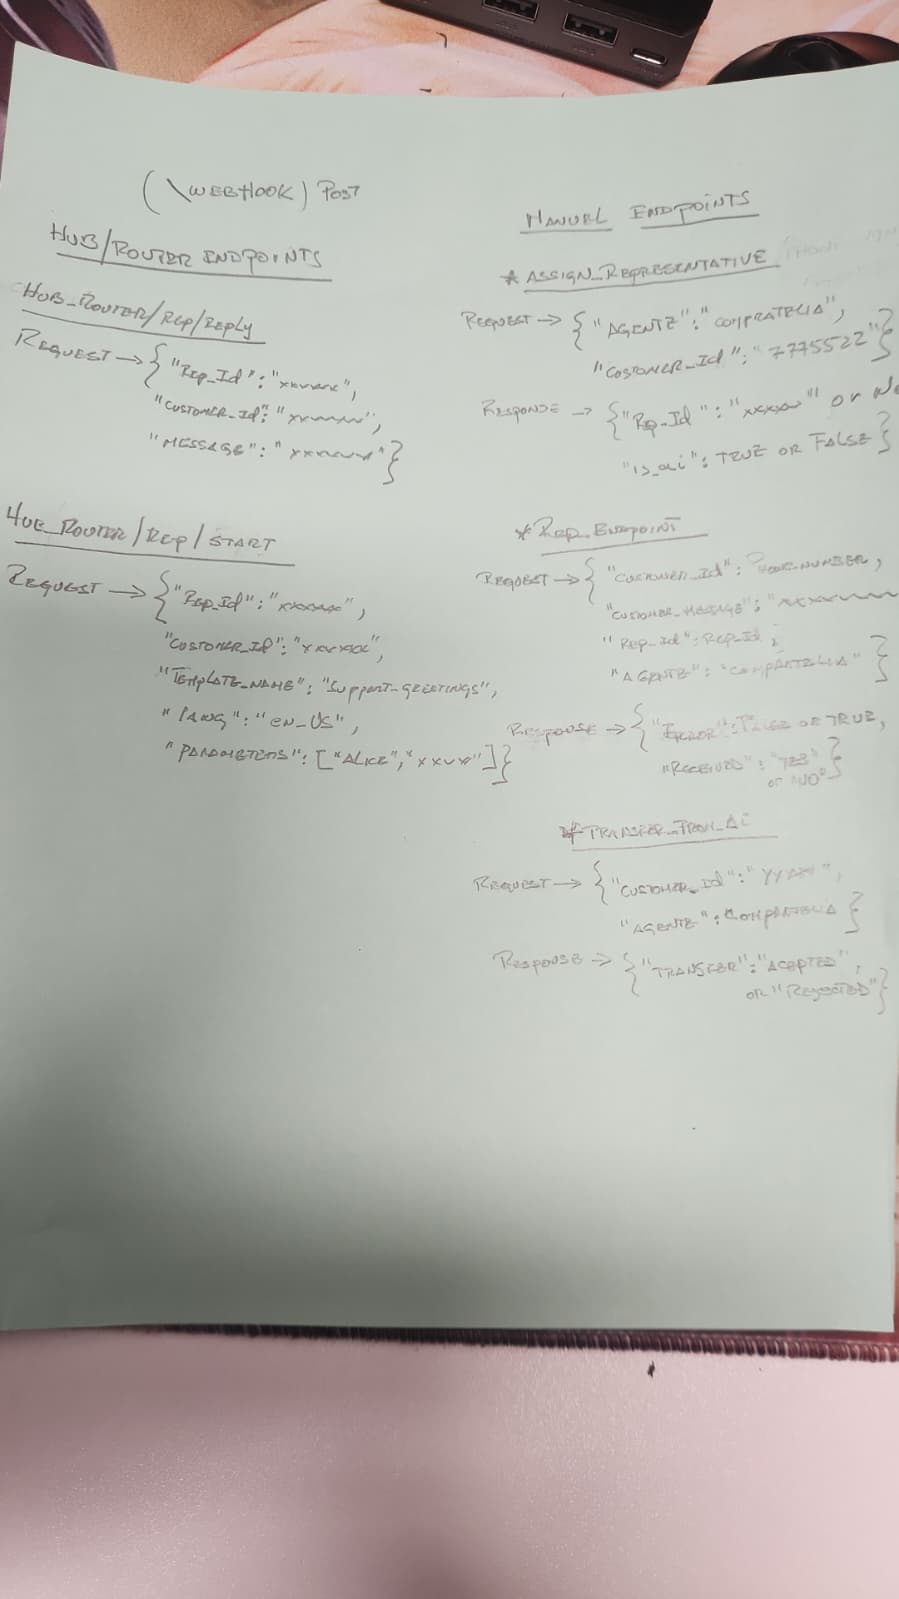 (\WEBHOOK) POST
HUB/ROUTER ENDPOINTS
HUB_ROUTER/REP/REPLY
REQUEST → {"Rep_Id": "xxxxxx",
"CUSTOMER_Id": "xxxxxx",
"MESSAGE": "xxxxxx"}
HUB_ROUTER/REP/START
REQUEST → {"Rep_Id": "xxxxxx",
"CUSTOMER_Id": "xxxxxx",
"TEMPLATE_NAME": "Support_GREETINGS",
"LANG": "en_US",
"PARAMETERS": ["ALICE", "xxxx"]}
MANUEL ENDPOINTS
* ASSIGN_REPRESENTATIVE
REQUEST → {"AGENTE": "COMPRATELIA",
"COSTOMER_Id": "7775522"}
RESPONSE → {"Rep_Id": "xxxxx" or No
"is_ai": TRUE OR FALSE}
* REP_ENDPOINT
REQUEST → {"CUSTOMER_Id": NUMBER,
"CUSTOMER_MESSAGE": "xxxxxx
"REP_Id": REP_Id,
"AGENTE": "COMPRATELIA"}
RESPONSE → {"ERROR": FALSE OR TRUE,
"RECEIVED": "YES"
or "NO"}
* TRANSFER_FROM_AI
REQUEST → {"CUSTOMER_Id": "
"AGENTE": COMPRATELIA}
RESPONSE → {"TRANSFER": "ACEPTED",
or "REJECTED"}